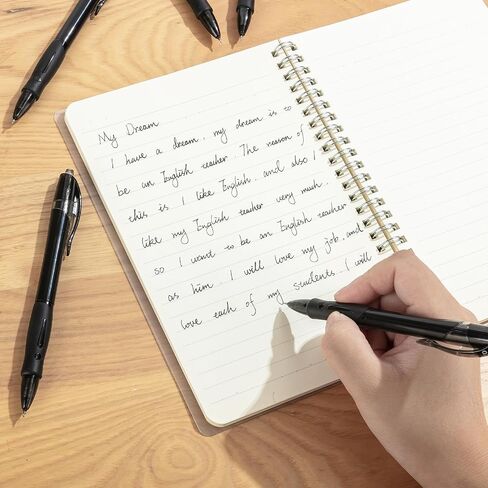 My Dream
I have a dream, my dream is to
be an English teacher. The reason of
this is I like English. and also I
like my English teacher very much.
so I want to be an English teacher
as him. I will love my job. and
love each of my students. I will